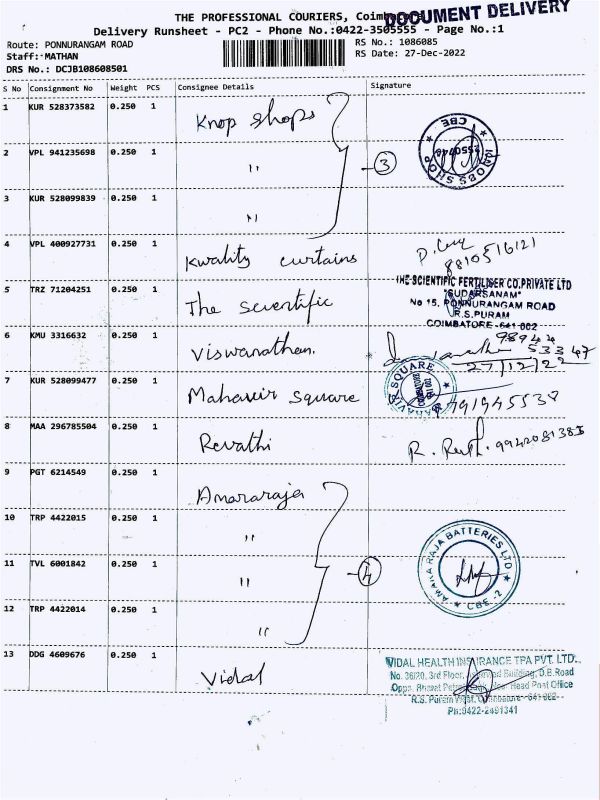 THE PROFESSIONAL COURIERS,
DOCUMENT DELIVERY
Delivery Runsheet - PC2 - Phone No.:0422-3505555 - Page No.:1
Route: PONNURANGAM ROAD
RS No.: 1086085
Staff: MATHAN
RS Date: 27-Dec-2022
DRS No.: DCJB108608501
S No Consignment No Weight PCS Consignee Details Signature
1 KUR 528373582 0.250 1 Knop shops
CBE
2 VPL 941235698 0.250 1 "
3
KNOBS SHOP
3 KUR 528099839 0.250 1 "
4 VPL 400927731 0.250 1 Kwality curtains
8810516121
5 TRZ 71204251 0.250 1 The scientific
THE SCIENTIFIC FERTILISER CO.PRIVATE LTD
"SUDARSANAM"
No 15, PONNURANGAM ROAD
R.S.PURAM
COIMBATORE -641 002
6 KMU 3316632 0.250 1 Viswanathan.
98944
53347
27/12/22
7 KUR 528099477 0.250 1 Mahavir Square
SQUARE
8 MAA 296785504 0.250 1 Revathi
R.
9 PGT 6214549 0.250 1 Amararaja
10 TRP 4422015 0.250 1 "
AMARA RAJA BATTERIES LTD
CBE-2
11 TVL 6001842 0.250 1 "
4
12 TRP 4422014 0.250 1 "
13 DDG 4609676 0.250 1 Vidal
VIDAL HEALTH INSURANCE TPA PVT. LTD.
No. 36/20, 3rd Floor, Building, D.B.Road
Head Post Office
R.S. Puram
Ph:0422-2491341